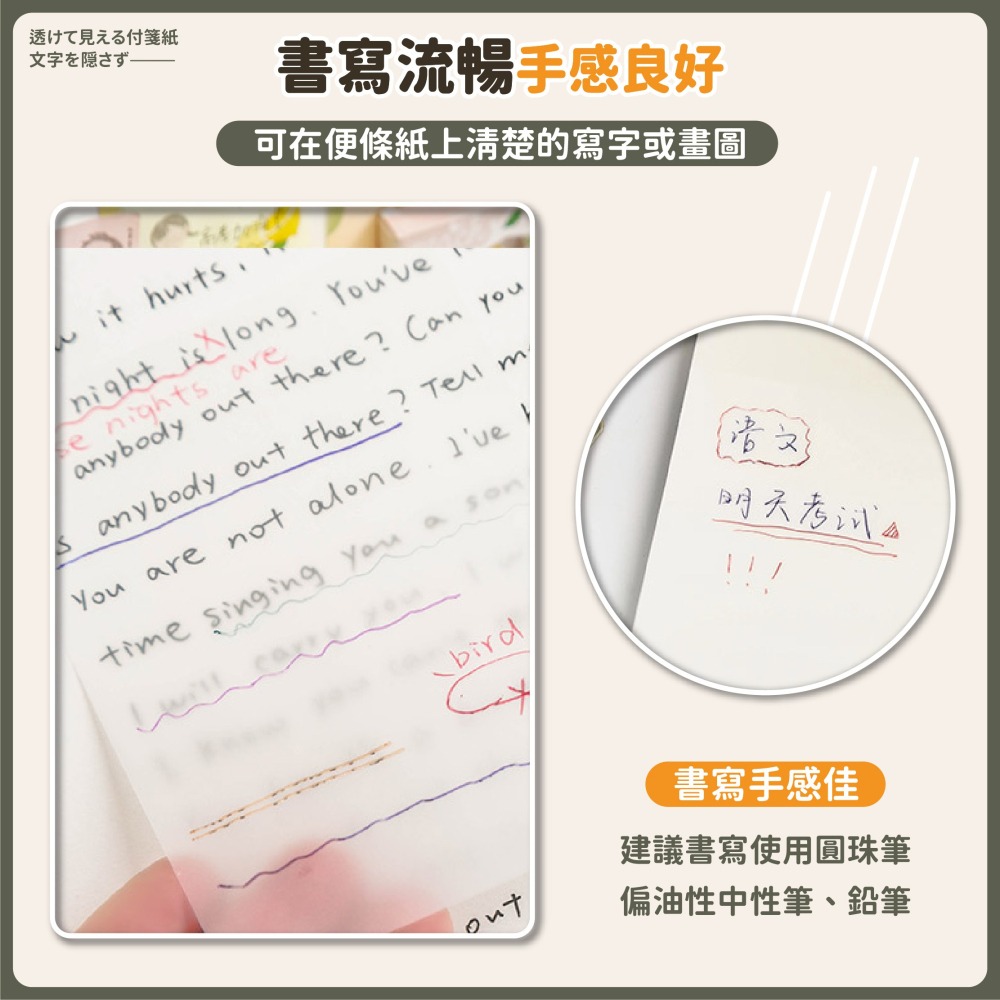 透けて見える付箋紙
文字を隠さず——
書寫流暢手感良好
可在便條紙上清楚的寫字或畫圖
it hurts,
night is long. You've
se nights are
anybody out there? Can you
s anybody out there? Tell m
You are not alone. I've
time singing you a son
I will carry you
I know you
bird
out
背文
明天考試
!!!
書寫手感佳
建議書寫使用圓珠筆
偏油性中性筆、鉛筆